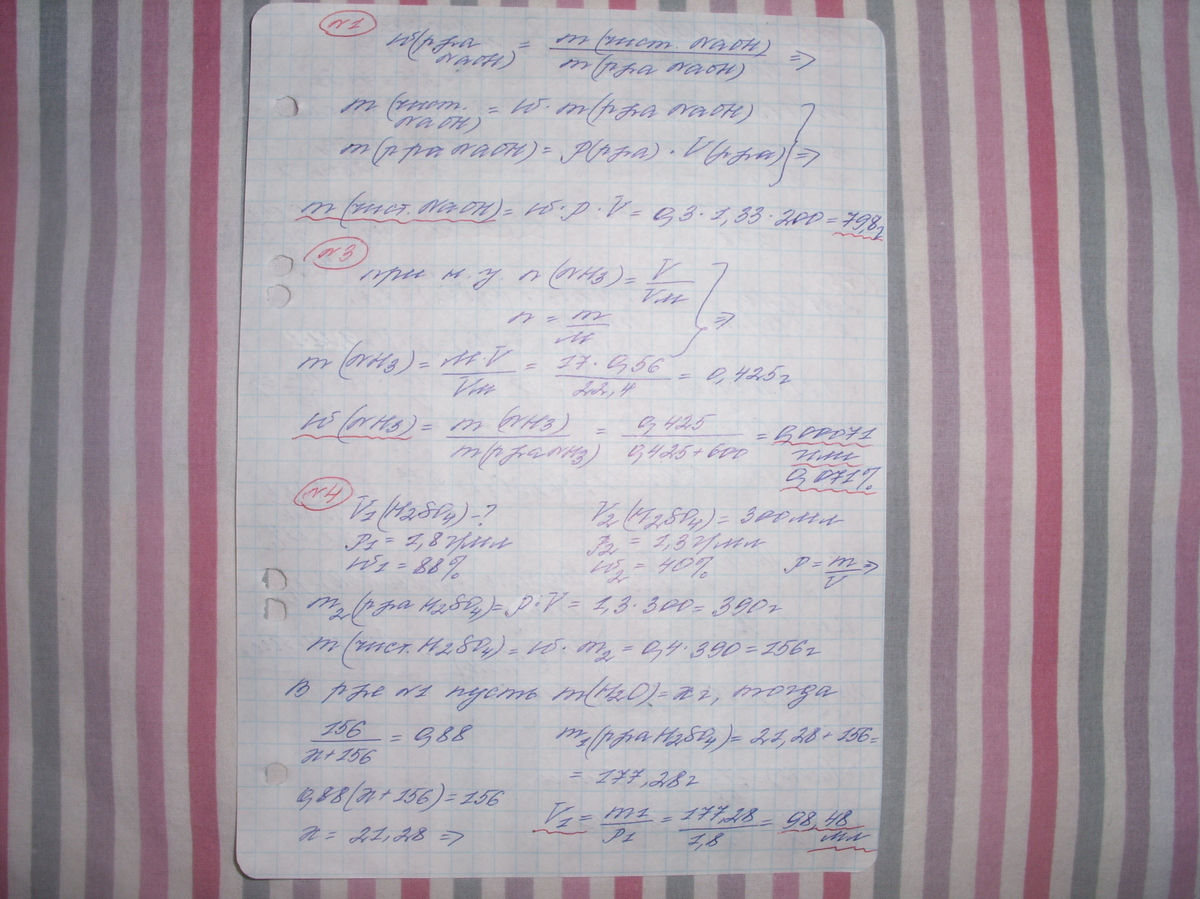 №1
ω(р-ра NaOH) = m(чист. NaOH) / m(р-ра NaOH) =>
m(чист. NaOH) = ω · m(р-ра NaOH)
m(р-ра NaOH) = ρ(р-ра) · V(р-ра) =>
m(чист. NaOH) = ω·ρ·V = 0,3 · 1,33 · 200 = 79,8г
№3
при н.у. n(NH3) = V / Vм
n = m / M =>
m(NH3) = M·V / Vм = 17 · 0,56 / 22,4 = 0,425г
ω(NH3) = m(NH3) / m(р-ра NH3) = 0,425 / 0,425+600 = 0,00071
или
0,071%
№4
V1(H2SO4) - ? V2(H2SO4) = 300мл
ρ1 = 1,8г/мл ρ2 = 1,3г/мл
ω1 = 88% ω2 = 40% ρ = m/V =>
m2(р-ра H2SO4) = ρ·V = 1,3 · 300 = 390г
m(чист. H2SO4) = ω · m2 = 0,4 · 390 = 156г
В р-ре №1 пусть m(H2O) = x г, тогда
156 / x+156 = 0,88 m1(р-ра H2SO4) = 21,28 + 156 =
= 177,28г
0,88(x+156) = 156
x = 21,28 => V1 = m1 / ρ1 = 177,28 / 1,8 = 98,48
мл